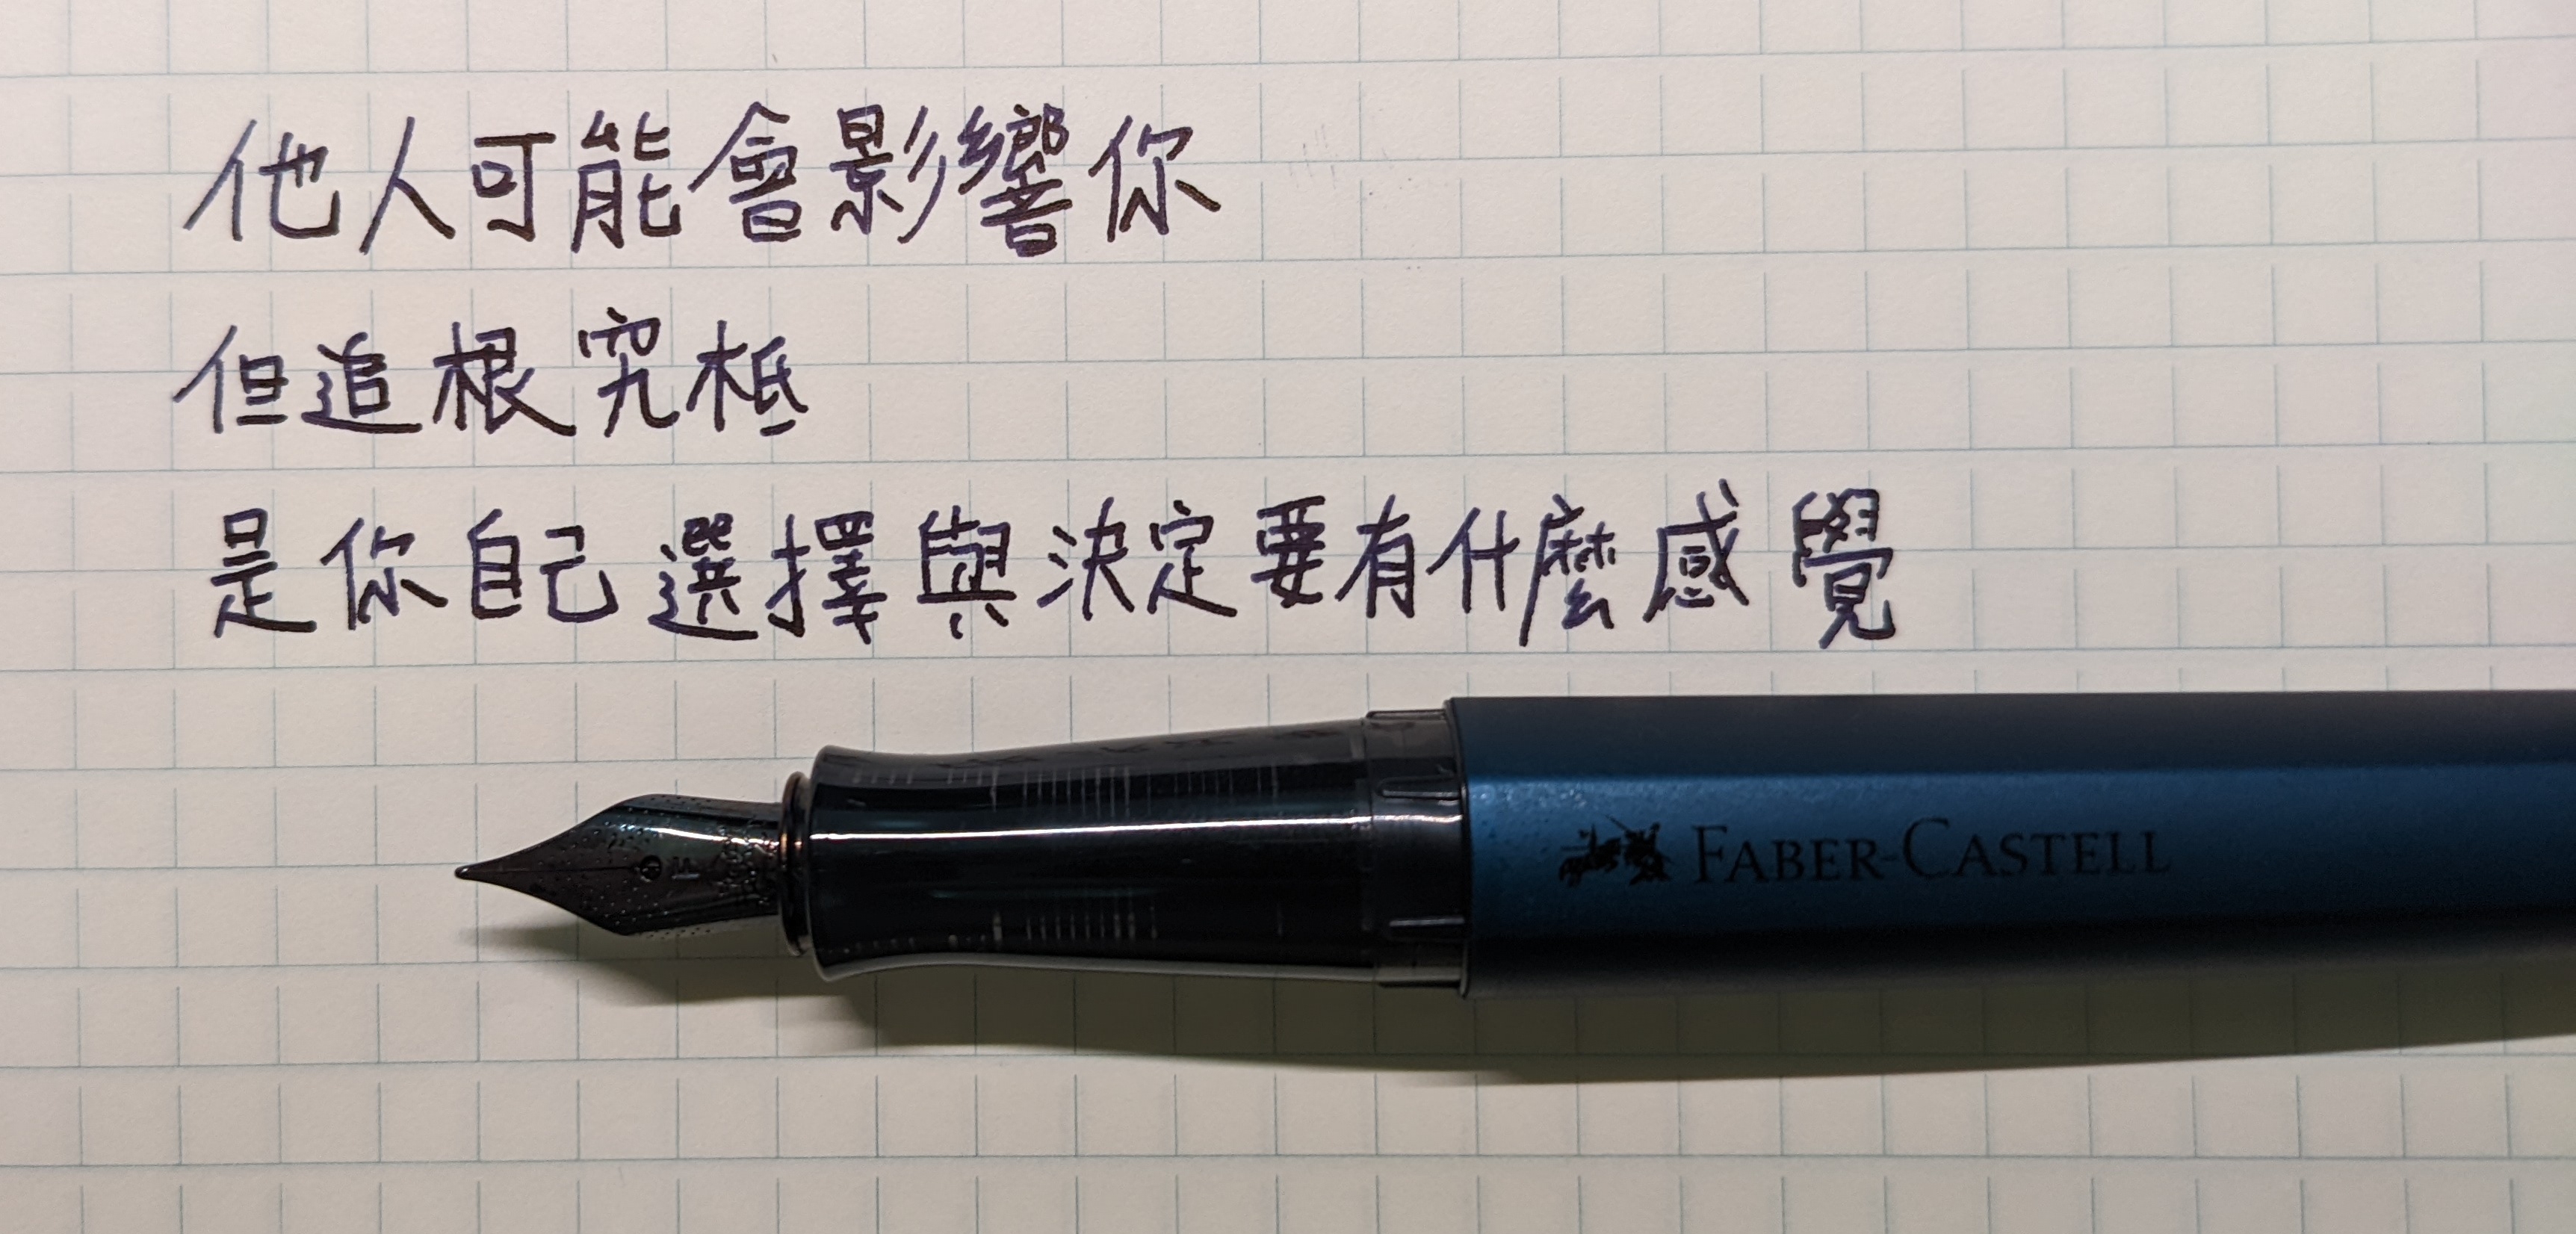 他人可能會影響你
但追根究柢
是你自己選擇與決定要有什麼感覺
FABER-CASTELL
F